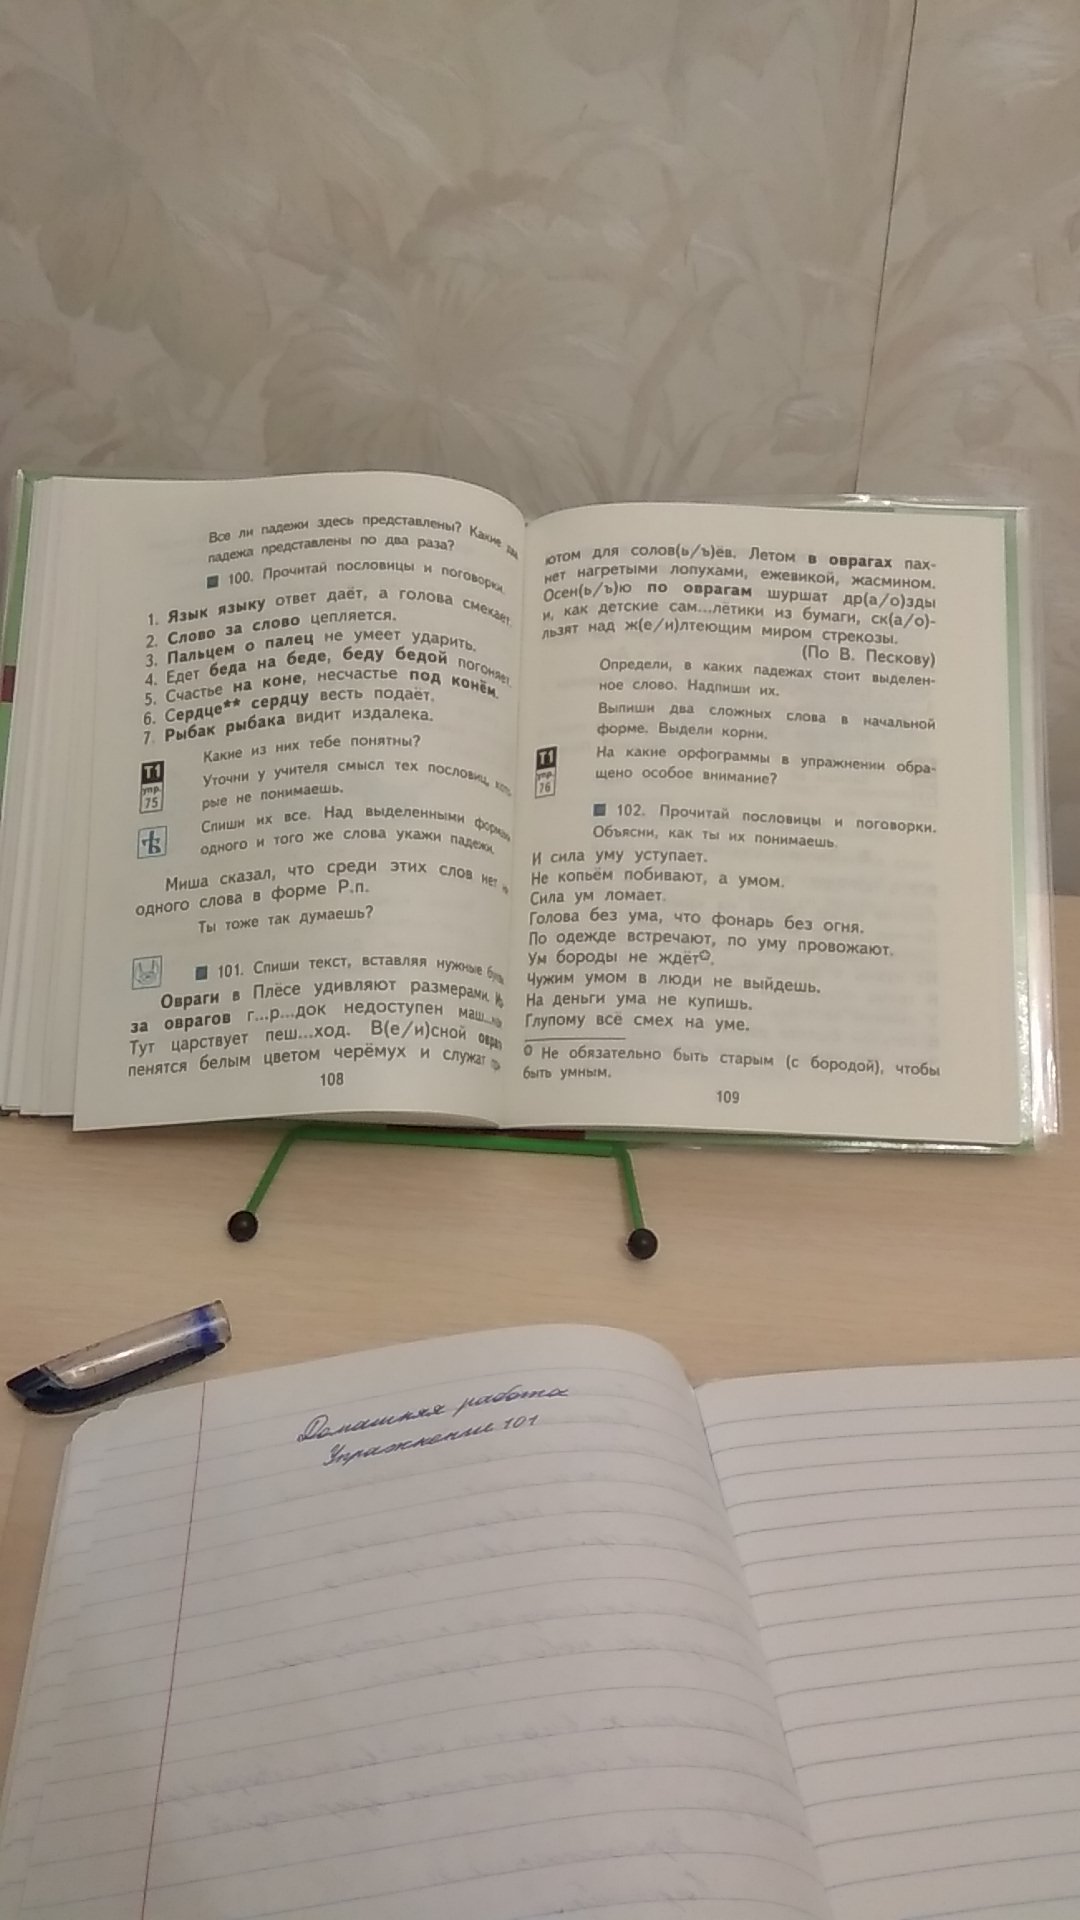 Все ли падежи здесь представлены? Какие два
падежа представлены по два раза?
100. Прочитай пословицы и поговорки.
1. Язык языку ответ даёт, а голова смекает.
2. Слово за слово цепляется.
3. Пальцем о палец не умеет ударить.
4. Едет беда на беде, беду бедой погоняет.
5. Счастье на коне, несчастье под конём.
6. Сердце** сердцу весть подаёт.
7. Рыбак рыбака видит издалека.
Какие из них тебе понятны?
Т1
упр.
75
Уточни у учителя смысл тех пословиц, кото-
рые не понимаешь.
Спиши их все. Над выделенными формами
одного и того же слова укажи падежи.
Миша сказал, что среди этих слов нет ни
одного слова в форме Р.п.
Ты тоже так думаешь?
101. Спиши текст, вставляя нужные буквы
Овраги в Плёсе удивляют размерами.
за оврагов г...р...док недоступен маш...
Тут царствует пеш...ход. В(е/и)сной овраги
пенятся белым цветом черёмух и служат
108
ютом для солов(ь/ъ)ёв. Летом в оврагах пах-
нет нагретыми лопухами, ежевикой, жасмином.
Осен(ь/ъ)ю по оврагам шуршат др(а/о)зды
и, как детские сам...лётики из бумаги, ск(а/о)-
льзят над ж(е/и)лтеющим миром стрекозы.
(По В. Пескову)
Определи, в каких падежах стоит выделен-
ное слово. Надпиши их.
Выпиши два сложных слова в начальной
форме. Выдели корни.
Т1
упр.
76
На какие орфограммы в упражнении обра-
щено особое внимание?
102. Прочитай пословицы и поговорки.
Объясни, как ты их понимаешь.
И сила уму уступает.
Не копьём побивают, а умом.
Сила ум ломает.
Голова без ума, что фонарь без огня.
По одежде встречают, по уму провожают.
Ум бороды не ждёт.
Чужим умом в люди не выйдешь.
На деньги ума не купишь.
Глупому всё смех на уме.
Не обязательно быть старым (с бородой), чтобы
быть умным.
109
Домашняя работа
Упражнение 101